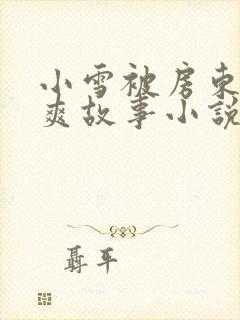 小雪被房东
爽故事小説
聶平